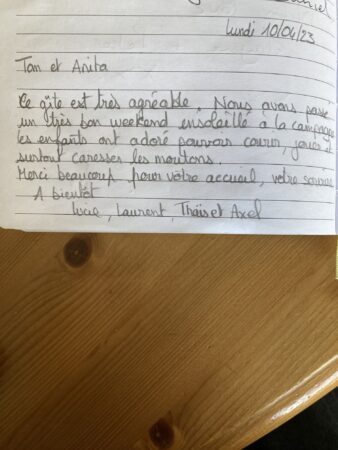 lundi 10/04/23
Tom et Anita
Ce gîte est très agréable. Nous avons passé
un très bon weekend ensoleillé à la campagne
les enfants ont adoré pouvoir courir, jouer et
surtout caresser les moutons.
Merci beaucoup pour votre accueil, votre sourire
A bientôt
Lucie, Laurent, Thaïs et Axel